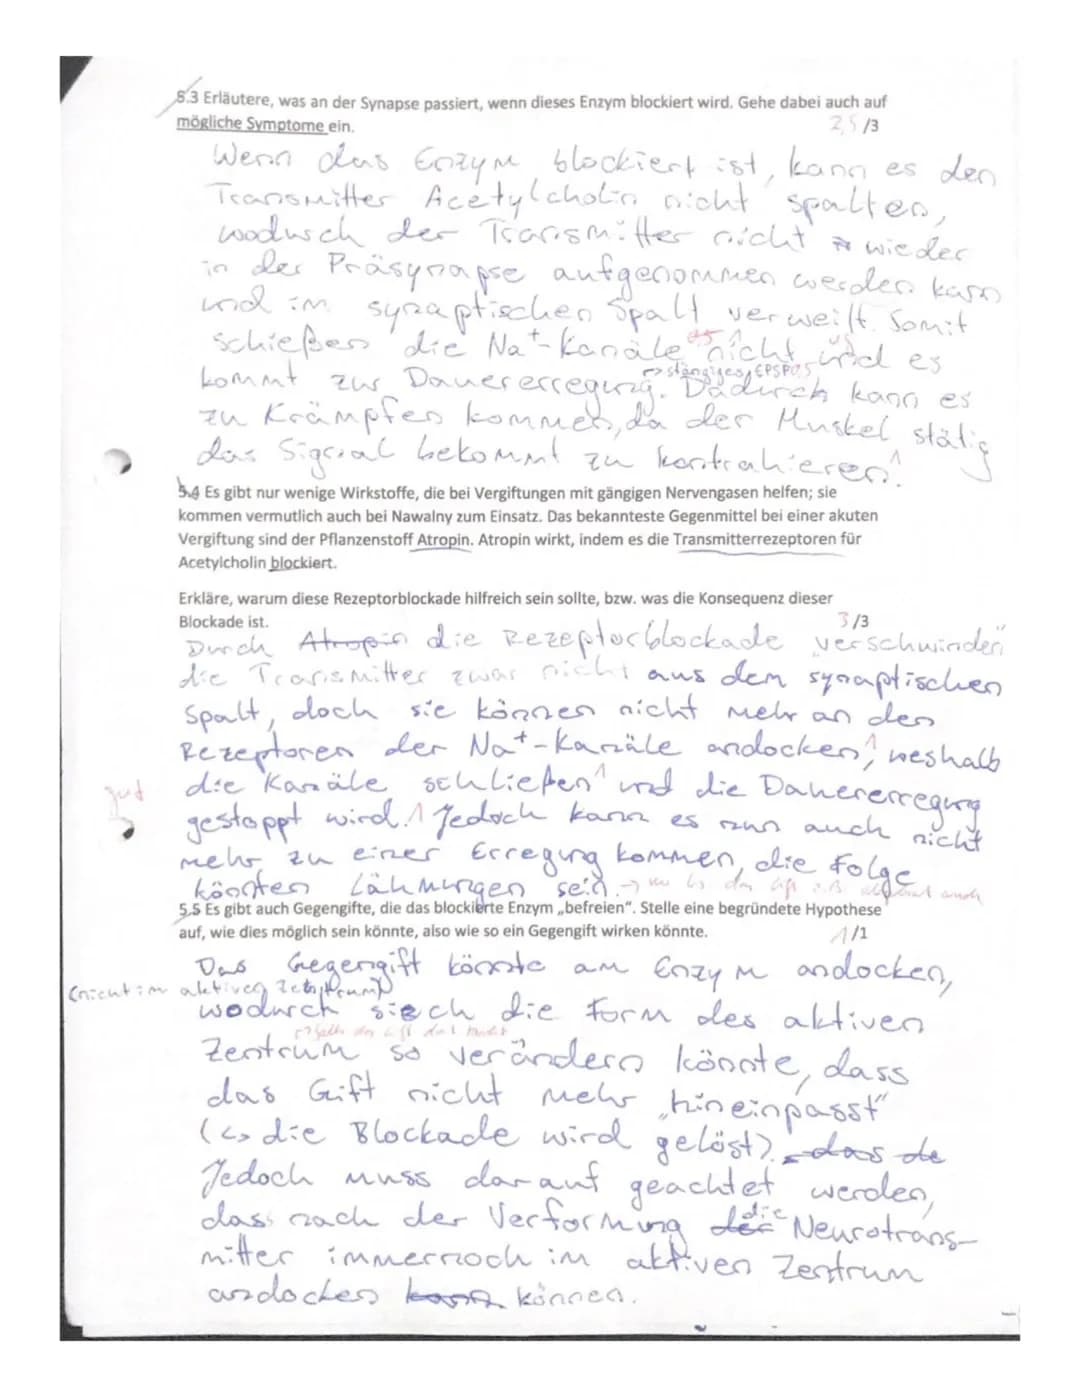 5.3 Erläutere, was an der Synapse passiert, wenn dieses Enzym blockiert wird. Gehe dabei auch auf
mögliche Symptome ein.
2,5/3
Wenn das Enzym blockiert ist, kann es den
Transmitter Acetylcholin nicht spalten,
wodurch der Transmitter nicht wieder
in der Präsynapse aufgenommen werden kann
und im synaptischen Spalt verweilt. Somit
schießen die Na⁺-Kanäle nicht und es
→ ständiges EPSP 0,5
kommt zur Dauererregung. Dadurch kann es
zu Krämpfen kommen, da der Muskel stätig
das Signal bekommt zu kontrahieren.
5.4 Es gibt nur wenige Wirkstoffe, die bei Vergiftungen mit gängigen Nervengasen helfen; sie
kommen vermutlich auch bei Nawalny zum Einsatz. Das bekannteste Gegenmittel bei einer akuten
Vergiftung sind der Pflanzenstoff Atropin. Atropin wirkt, indem es die Transmitterrezeptoren für
Acetylcholin blockiert.
Erkläre, warum diese Rezeptorblockade hilfreich sein sollte, bzw. was die Konsequenz dieser
Blockade ist.
3/3
Durch Atropin die Rezeptorblockade „verschwinden“
die Transmitter zwar nicht aus dem synaptischen
Spalt, doch sie können nicht mehr an den
Rezeptoren der Na⁺-Kanäle andocken, weshalb
die Kanäle schließen und die Dauererregung
gut
gestoppt wird. Jedoch kann es nun auch nicht
mehr zu einer Erregung kommen, die Folge
könnten Lähmungen sein.
5.5 Es gibt auch Gegengifte, die das blockierte Enzym „befreien“. Stelle eine begründete Hypothese
auf, wie dies möglich sein könnte, also wie so ein Gegengift wirken könnte.
1/1
Das Gegengift könnte am Enzym andocken,
(nicht im aktiven Zentrum)
wodurch sich die Form des aktiven
Zentrum so verändern könnte, dass
das Gift nicht mehr „hineinpasst“
(↳ die Blockade wird gelöst). das de
Jedoch muss darauf geachtet werden,
dass nach der Verformung die Neurotrans-
mitter immernoch im aktiven Zentrum
andocken kann können.